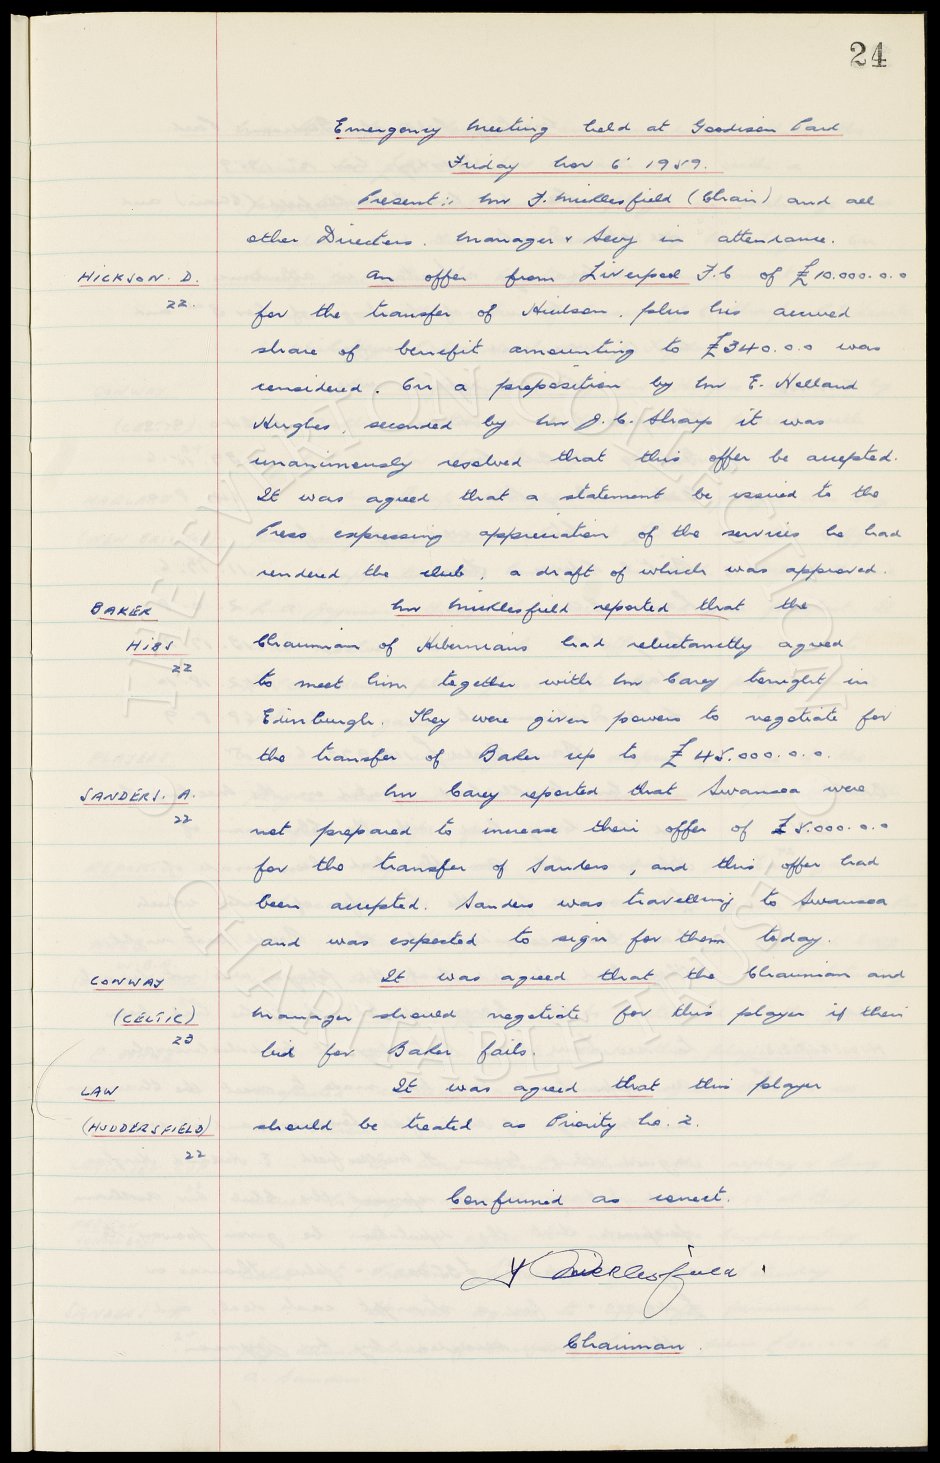 24
Emergency Meeting held at Goodison Park
Friday Nov 6 1959.
Present:: Mr F. Micklesfield (Chair) and all
other Directors. Manager & Secy in attendance.
HICKSON. D. An offer from Liverpool F.C of £10.000.0.0
22. for the transfer of Hickson, plus his accrued
share of benefit amounting to £340.0.0 was
considered. On a proposition by Mr E. Holland
Hughes, seconded by Mr J.C. Sharp it was
unanimously resolved that this offer be accepted.
It was agreed that a statement be issued to the
Press expressing appreciation of the services he had
rendered the club, a draft of which was approved.
BAKER Mr Micklesfield reported that the
HIBS Chairman of Hibernians had reluctantly agreed
22 to meet him together with Mr Carey tonight in
Edinburgh. They were given powers to negotiate for
the transfer of Baker up to £45.000.0.0.
SANDERS. A. Mr Carey reported that Swansea were
22 not prepared to increase their offer of £5.000.0.0
for the transfer of Sanders, and this offer had
been accepted. Sanders was travelling to Swansea
and was expected to sign for them today.
CONWAY It was agreed that the Chairman and
(CELTIC) Manager should negotiate for this player if their
23 bid for Baker fails.
LAW It was agreed that this player
(HUDDERSFIELD) should be treated as Priority No. 2.
22
Confirmed as correct.
F Micklesfield.
Chairman.
THE EVERTON COLLECTION
CHARITABLE TRUST